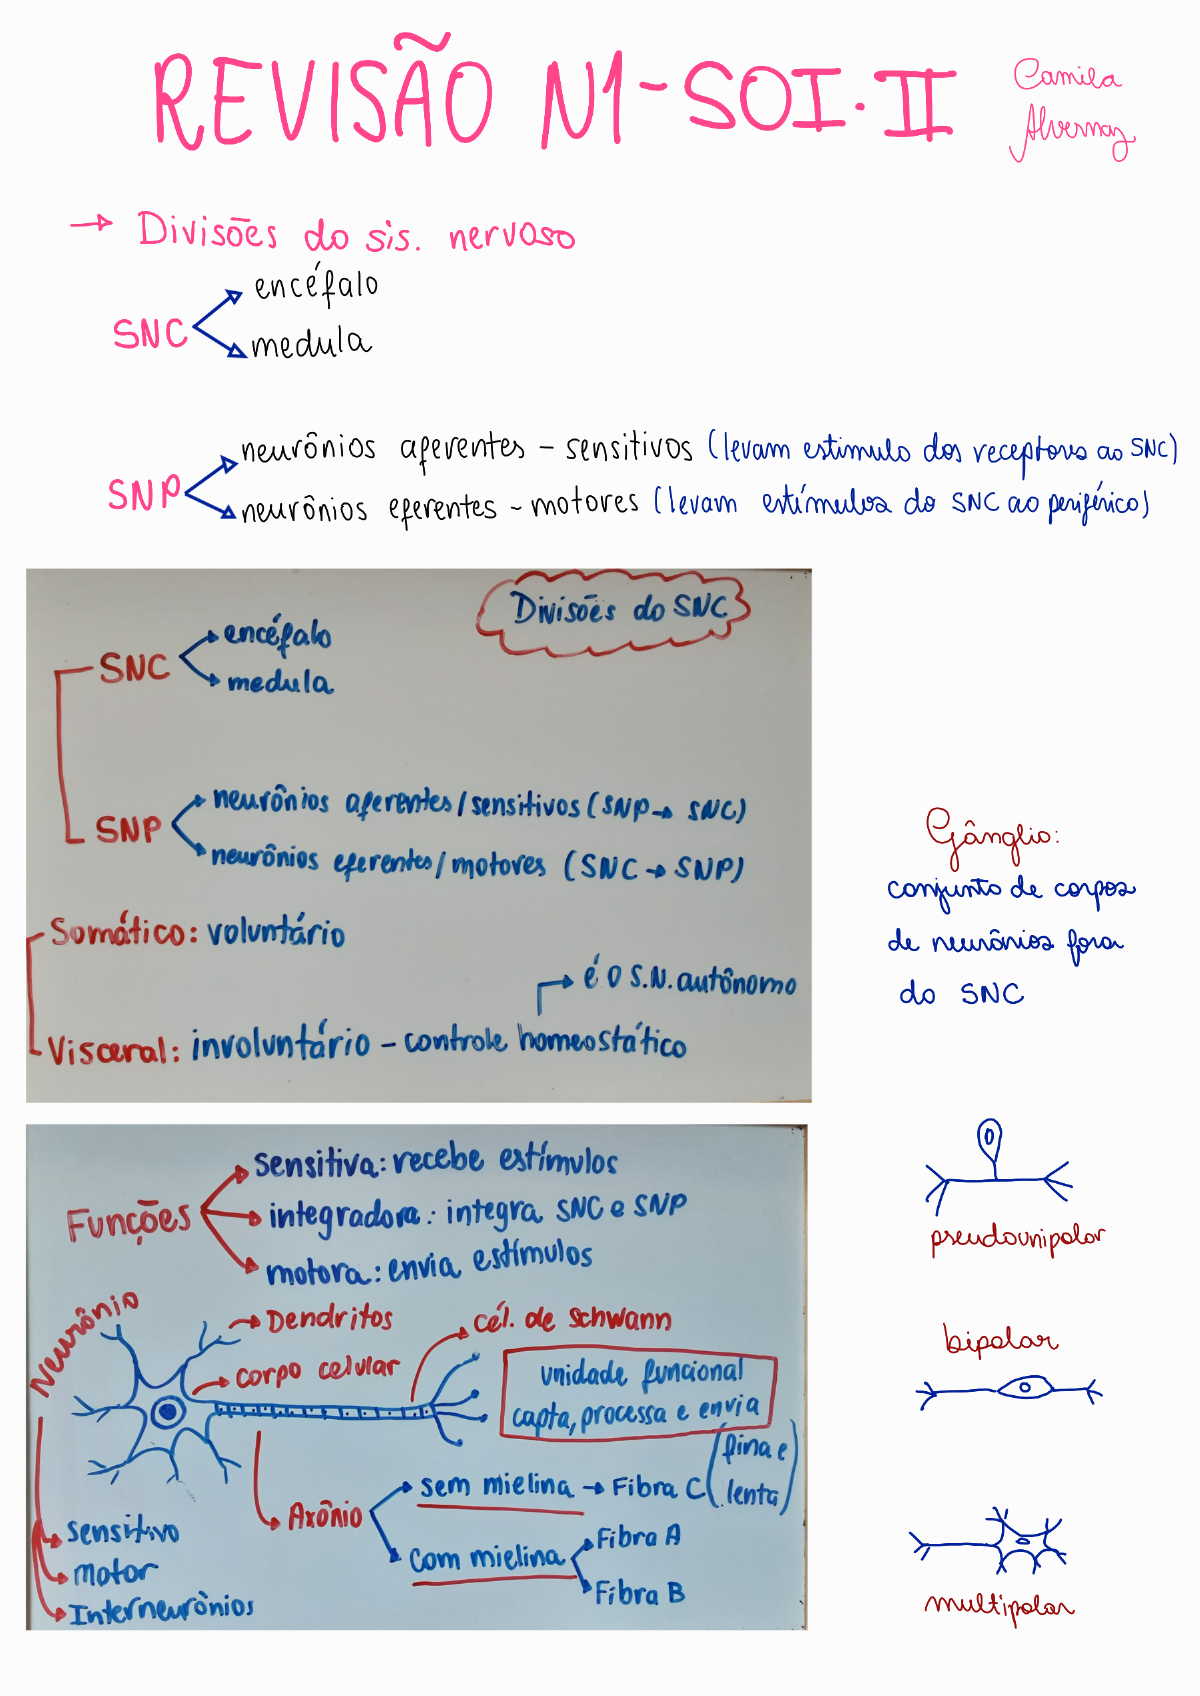 REVISÃO N1-SOI.II
Camila
Alvernaz
→ Divisões do sis. nervoso
SNC
encéfalo
medula
SNP
neurônios aferentes - sensitivos (levam estimulo dos receptores ao SNC)
neurônios eferentes - motores (levam estímulos do SNC ao periférico)
Divisões do SNC
SNC
encéfalo
medula
SNP
neurônios aferentes/sensitivos (SNP→ SNC)
neurônios eferentes/motores (SNC→ SNP)
Somático: voluntário
é o S.N. autônomo
Visceral: involuntário - controle homeostático
Gânglio:
conjunto de corpos
de neurônios fora
do SNC
Funções
sensitiva: recebe estímulos
integradora: integra SNC e SNP
motora: envia estímulos
Neurônio
Dendritos
corpo celular
cél. de schwann
unidade funcional
capta, processa e envia
Axônio
sem mielina → Fibra C (fina e
lenta)
com mielina
Fibra A
Fibra B
sensitivo
motor
Interneurônios
pseudounipolar
bipolar
multipolar